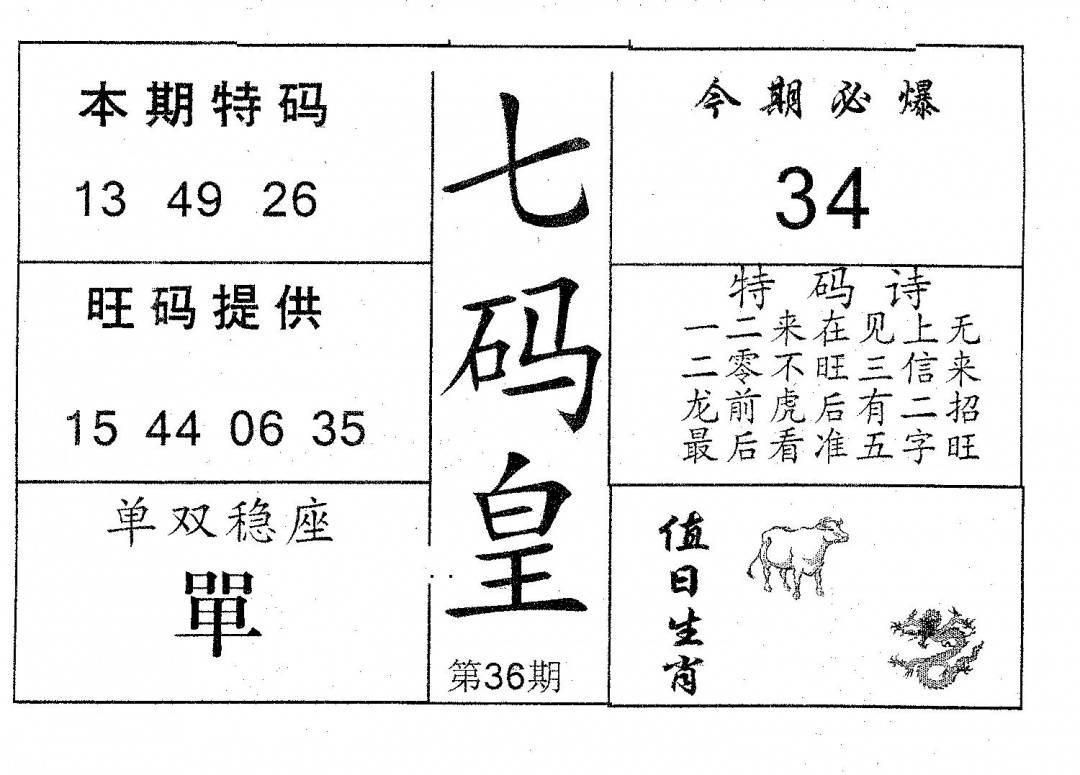 本期特码
13 49 26
旺码提供
15 44 06 35
单双稳座
單
七码皇
第36期
今期必爆
34
特码诗
一二来在见上无
二零不旺三信来
龙前虎后有二招
最后看准五字旺
值日生肖